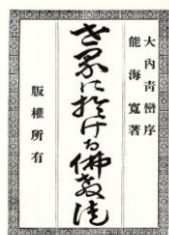 大內青巒序
能海寬著
世界に於ける佛教徒
版權所有